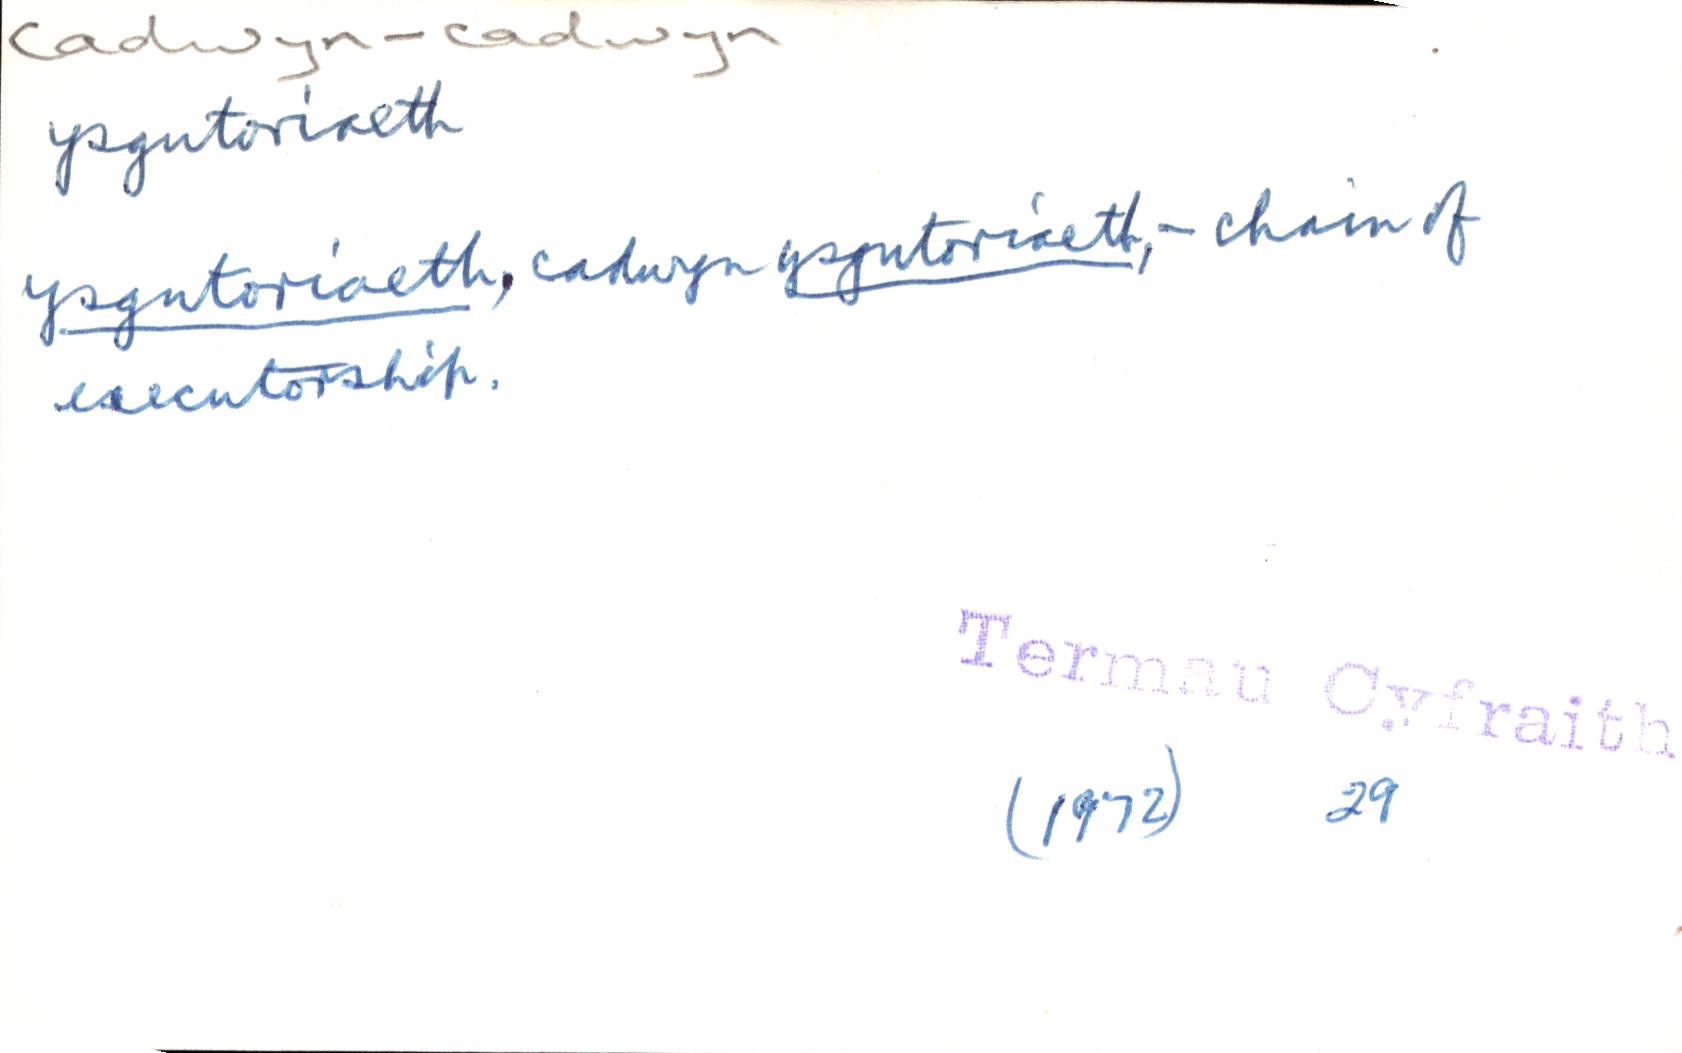 cadwyn-cadwyn
ysgutoriaeth
ysgutoriaeth, cadwyn ysgutoriaeth,- chain of
executorship.
Termau Cyfraith
(1972) 29